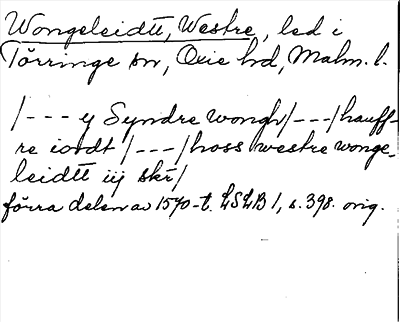 Wongeleidtt, Westre, led i
Törringe sn, Oxie hd, Malm. l.
/--- y Syndre wongh/---/hauff-
re iordt /---/hoss westre wonge-
leidtt iij skr/
förra delen av 1570-t. LSLB 1, s. 398. orig.